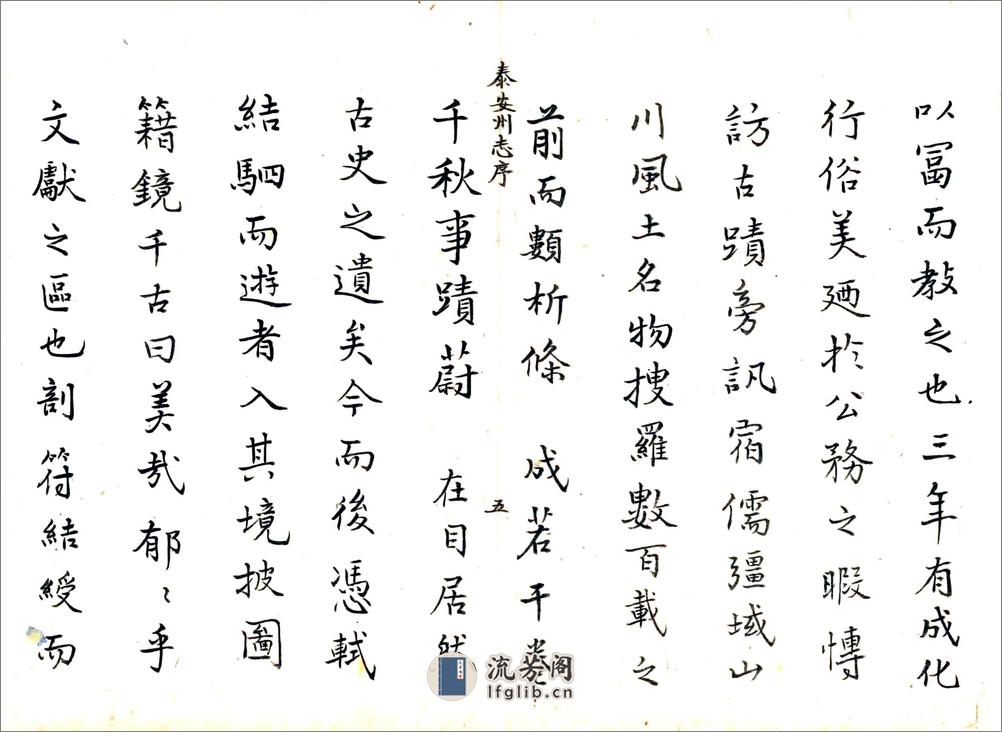 以冨而教之也三年有成化
行俗美廼於公務之暇愽
訪古蹟旁訊宿儒疆域山
川風土名物搜羅數百載之
前而類析條 成若干卷
泰安州志序
五
千秋事蹟蔚 在目居然
古史之遺矣今而後憑軾
結駟而遊者入其境披圖
籍鏡千古曰美哉郁〻乎
文獻之區也剖符結綬而
流芳阁
lfglib.cn